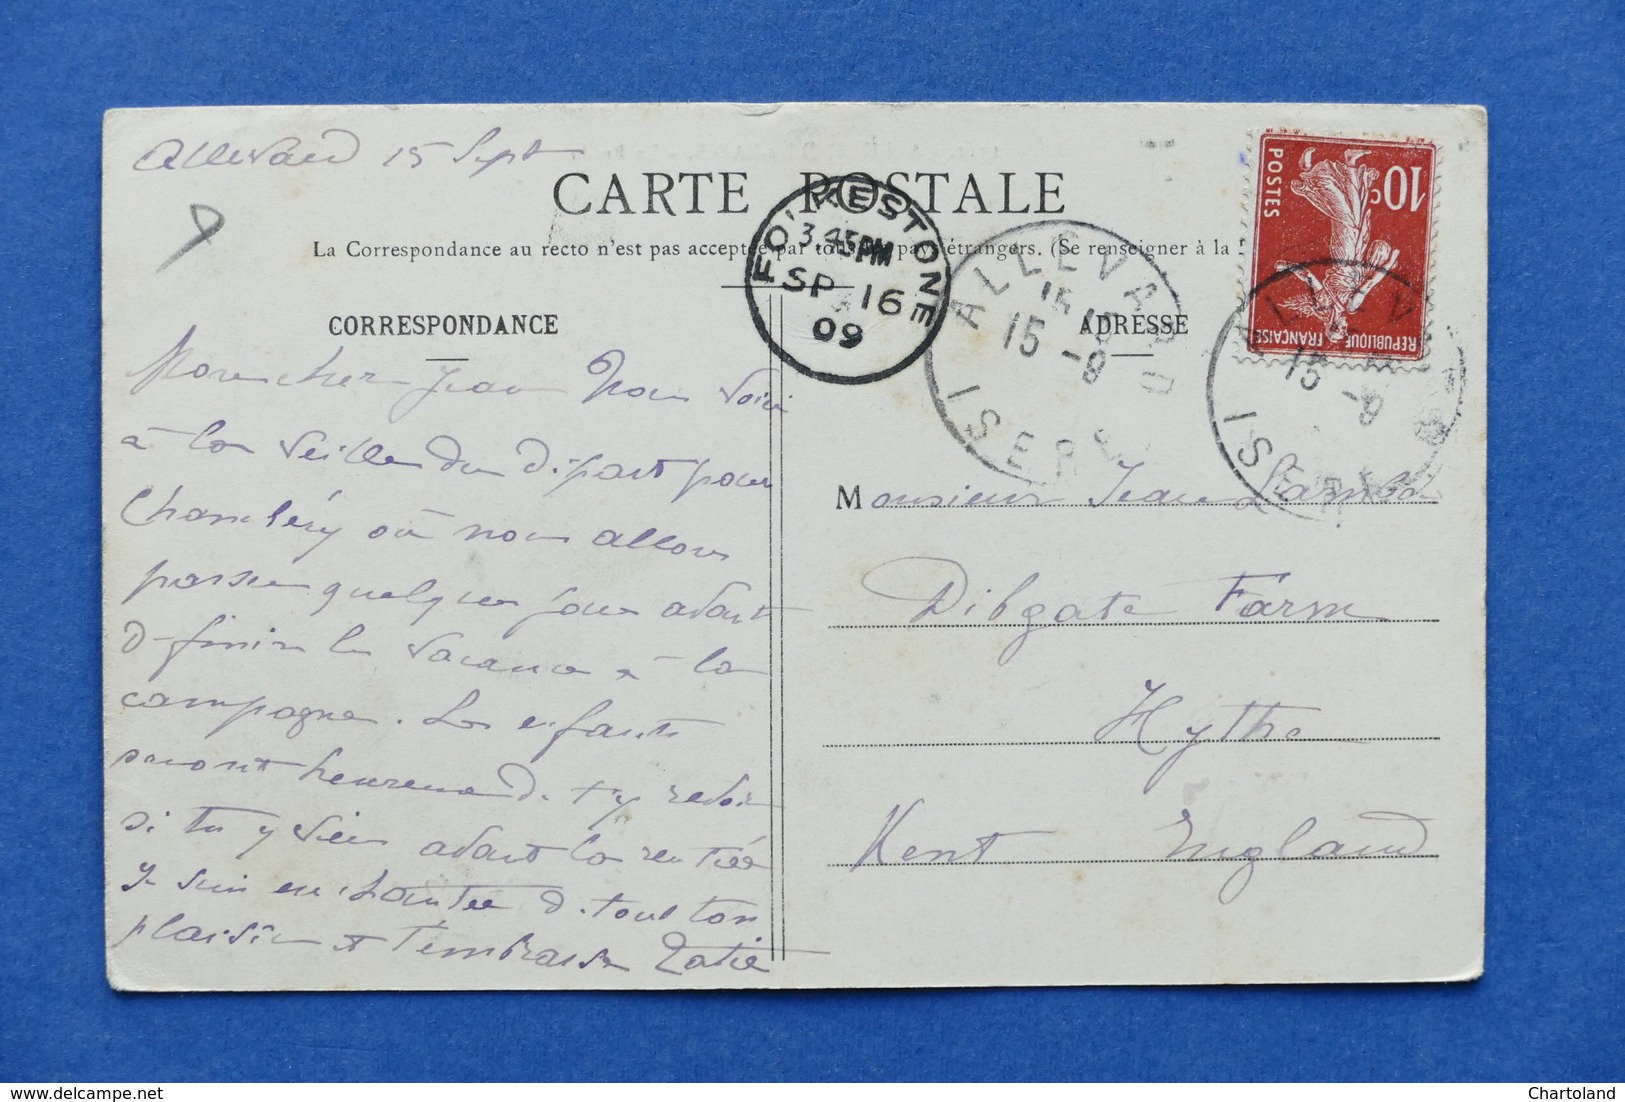 Allevard 15 Sept
CARTE POSTALE
La Correspondance au recto n'est pas acceptée par tous les pays étrangers. (Se renseigner à la
CORRESPONDANCE
ADRESSE
FOLKESTONE
3.45PM
SP 16
09
ALLEVARD
15
15 -9
ISERE
ALLEVARD
15 -9
ISERE
10c
POSTES
REPUBLIQUE FRANÇAISE
Mon cher Jean Nous voici
à la veille du départ pour
Chambéry où nous allons
passer quelques jours avant
de finir les vacances à la
campagne. Les enfants
seront heureux de t'y revoir
si tu y viens avant la rentrée
Je suis enchantée de tout ton
plaisir et t'embrasse
Monsieur Jean
Dibgate Farm
Hythe
Kent England
Chartoland